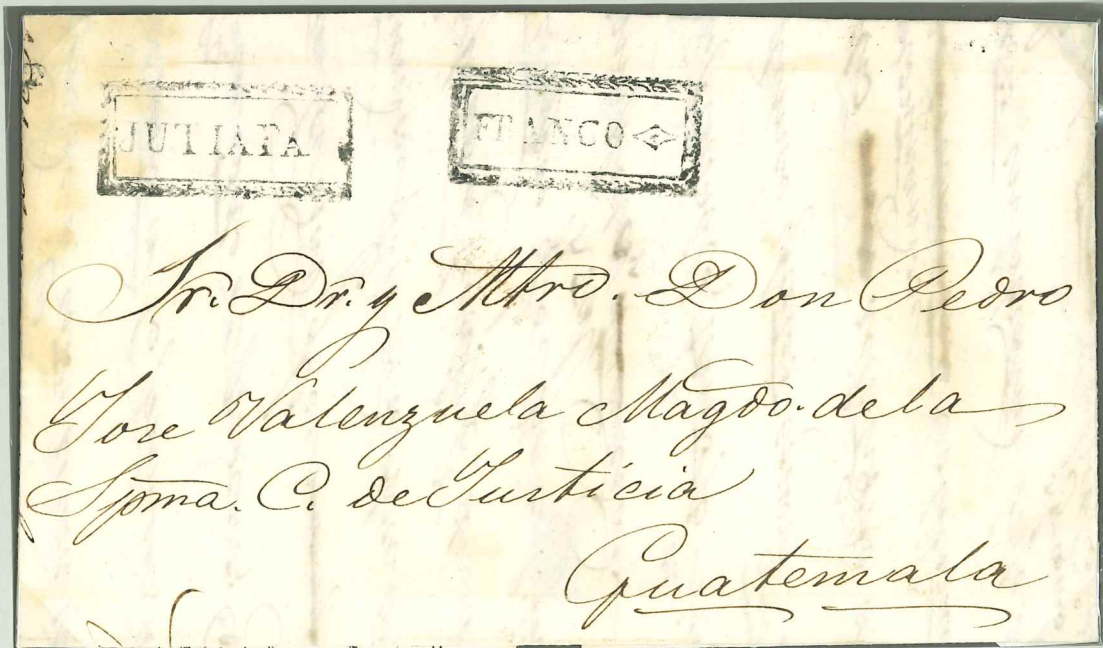 JUTIAPA
FRANCO
Sr. Dr. y Mtro. Don Pedro
Jose Valenzuela Magdo. de la
Spma. C. de Justicia
Guatemala